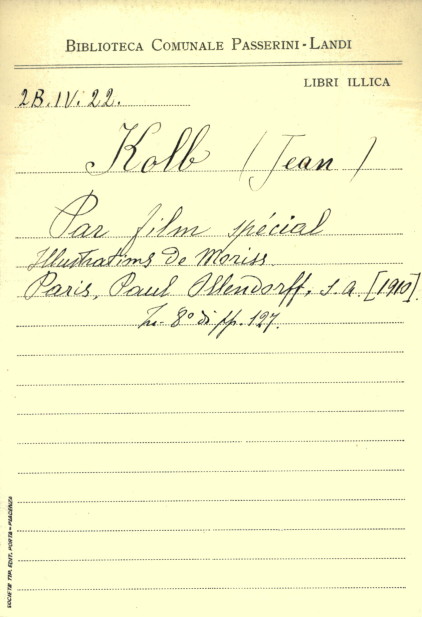 BIBLIOTECA COMUNALE PASSERINI-LANDI
LIBRI ILLICA
2B.IV.22.
Kolb (Jean)
Par film spécial
Illustrations de Moriss
Paris, Paul Ollendorff, s.a. [1910].
In-8° di pp. 127.
SOCIETÀ TIP. EDIT. PORTA-PIACENZA